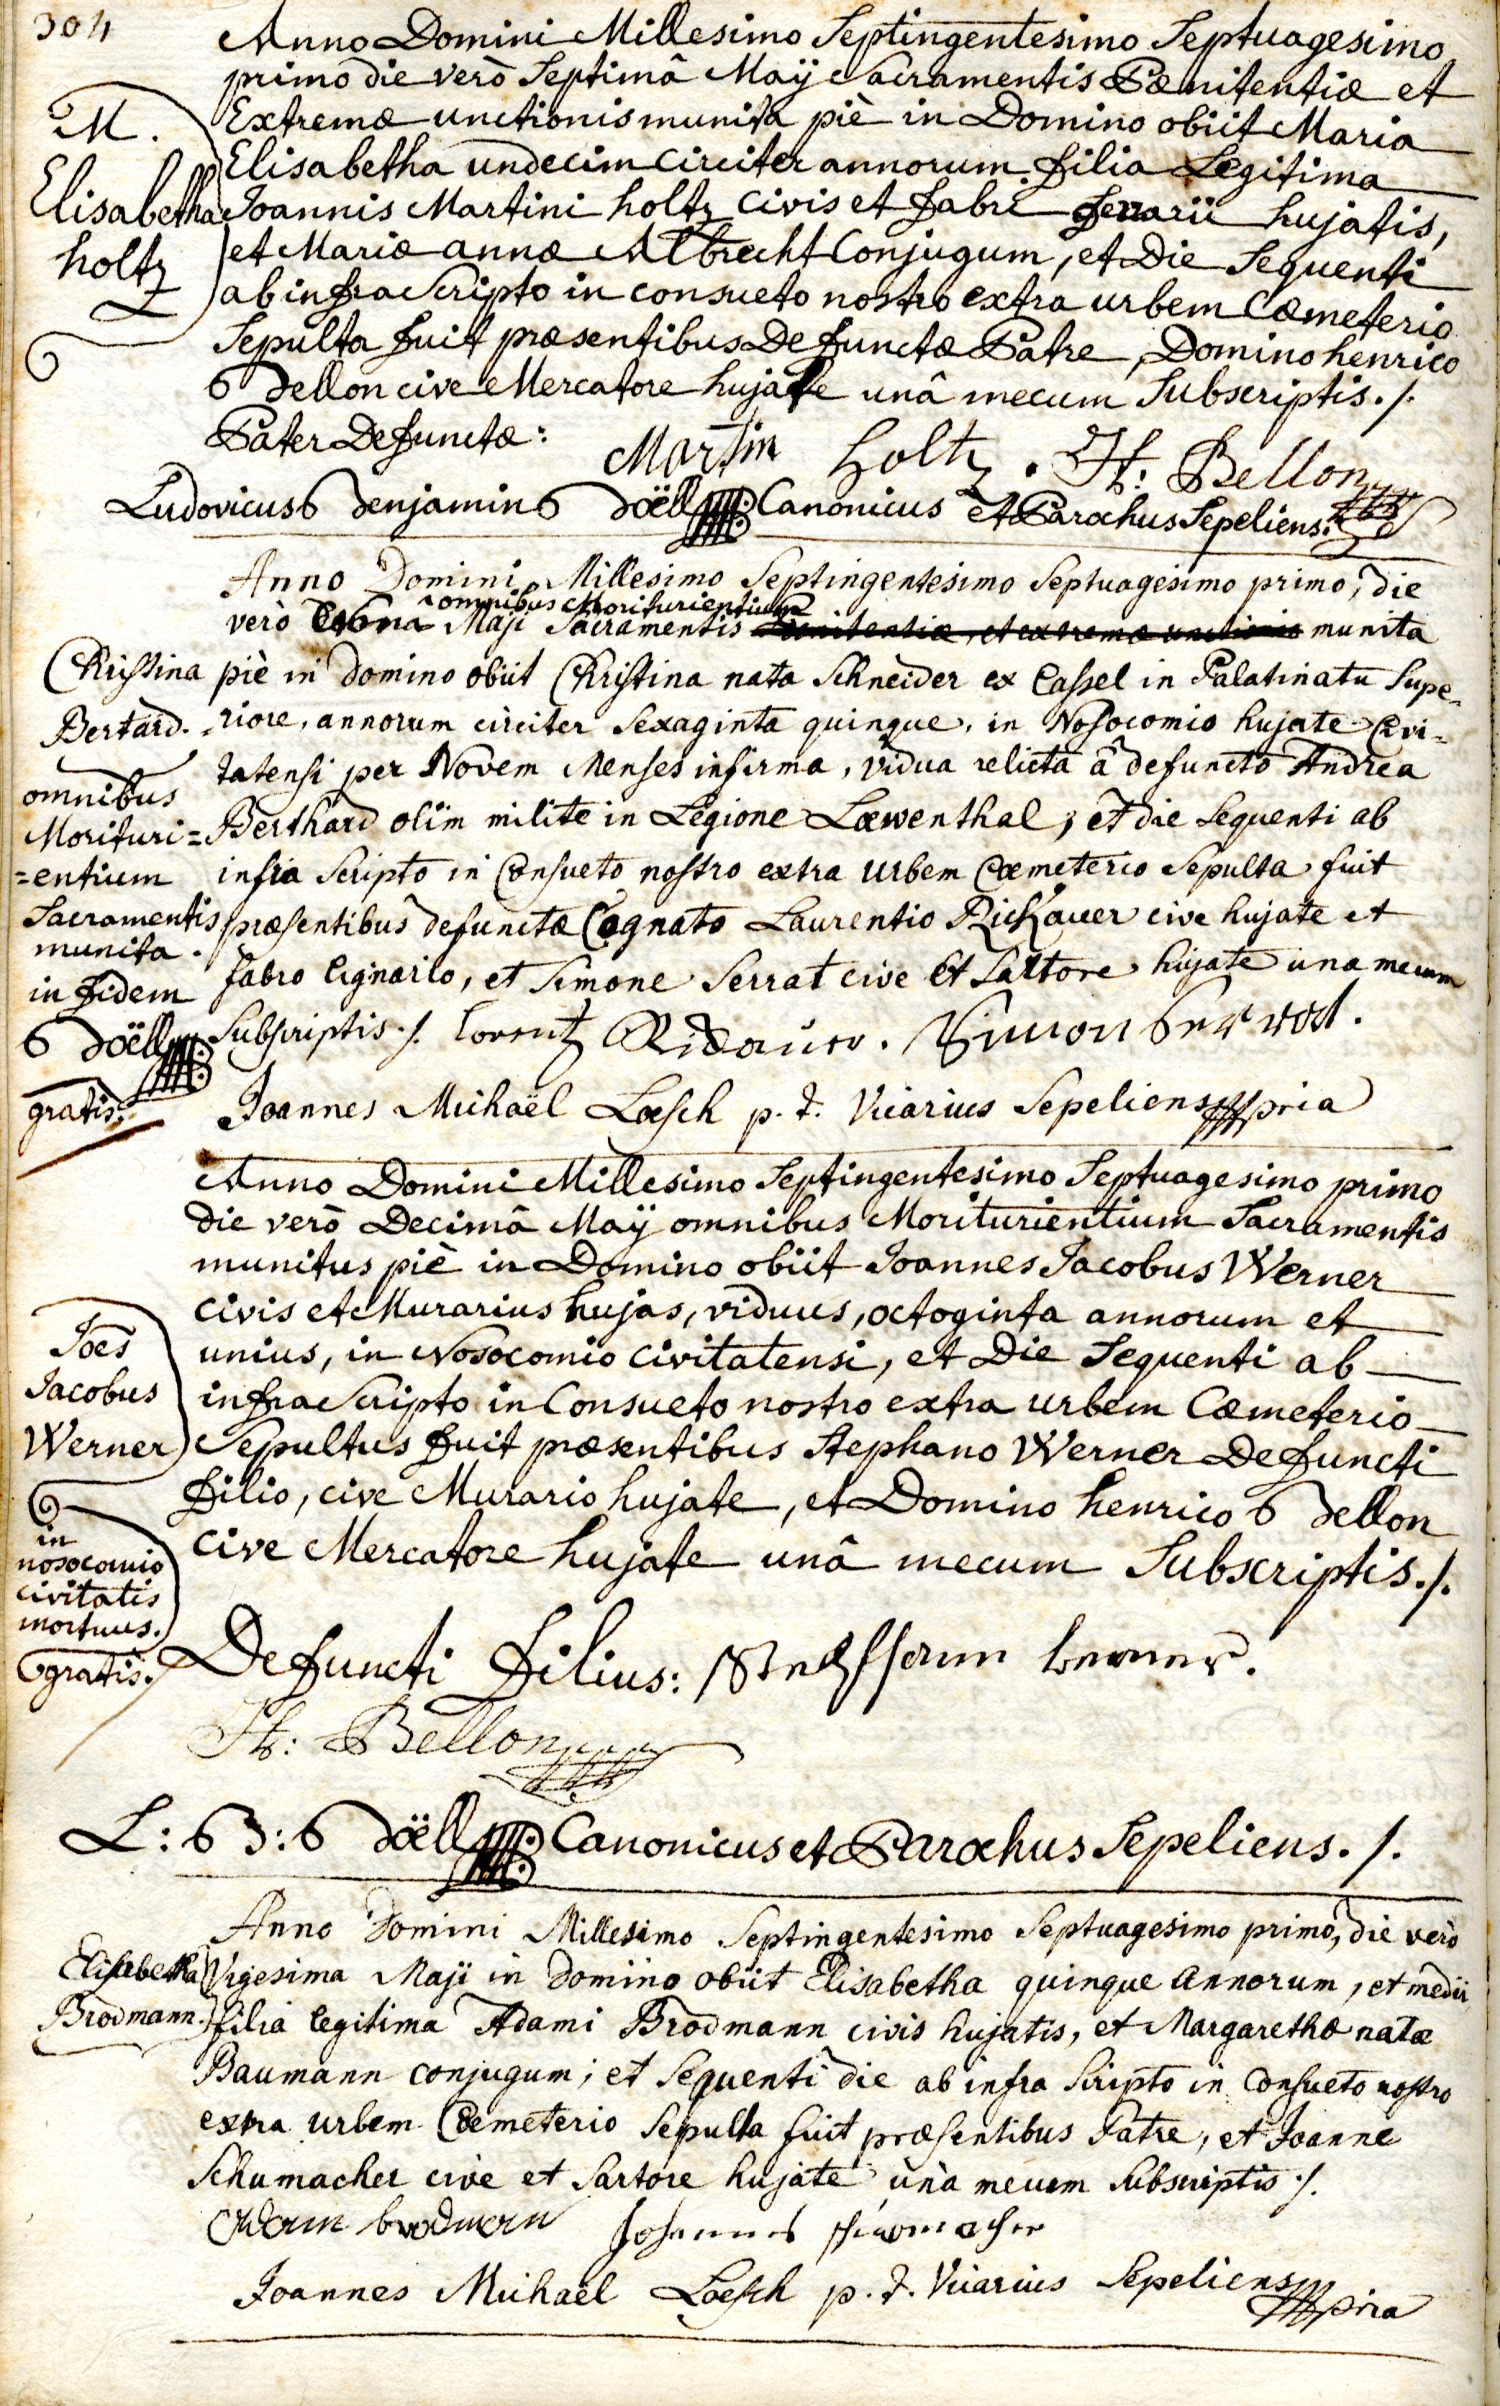 304
Anno Domini Millesimo Septingentesimo Septuagesimo
primo die verò Septimâ Maÿ Sacramentis Pænitentiæ et
Extremæ unctionis munita piè in Domino obiit Maria
Elisabetha undecim circiter annorum filia Legitima
Joannis Martini holtz civis et fabri ferrarii hujatis,
et Mariæ annæ Albrecht Conjugum, et Die Sequenti
ab infra Scripto in consueto nostro extra urbem Cæmeterio
Sepulta fuit præsentibus Defunctæ Patre, Domino henrico
Bellon cive Mercatore hujate unâ mecum Subscriptis ./.
M.
Elisabetha
holtz
Pater Defunctæ: Martin holtz . H: Bellon
Ludovicus Benjamin Boëll Canonicus et Parochus Sepeliens.
Anno Domini Millesimo Septingentesimo Septuagesimo primo, die
omnibus Moriturientium
verò Maji Sacramentis Pænitentiæ, et extremæ unctionis munita
piè in Domino obiit Christina nata Schneider ex Cassel in Palatinatu Supe-
riore, annorum circiter Sexaginta quinque, in Nosocomio hujate Civi-
tatensi per Novem Menses infirma, vidua relicta â defuncto Andrea
Berthard olim milite in Legione Lœwenthal; et die Sequenti ab
infra Scripto in Consueto nostro extra urbem Cœmeterio Sepulta fuit
præsentibus defunctæ Cognato Laurentio Rickauer cive hujate et
fabro lignario, et Simone Serrat cive et Sartore hujate una mecum
Subscriptis ./. Lorentz . Simon
Christina
Bertard.
omnibus
Morituri=
=entium
Sacramentis
munita.
in fidem
Boëll
gratis.
Joannes Michaël Lœsch p. t. Vicarius Sepeliens mppria
Anno Domini Millesimo Septingentesimo Septuagesimo primo
die verò Decimâ Maÿ omnibus Moriturientium Sacramentis
munitus piè in Domino obiit Joannes Jacobus Werner
civis et Murarius hujas, viduus, octoginta annorum et
unius, in Nosocomio civitatensi, et Die Sequenti ab
infra Scripto in Consueto nostro extra urbem Cæmeterio
Sepultus fuit præsentibus Stephano Werner Defuncti
filio, cive Murario hujate, et Domino henrico Bellon
cive Mercatore hujate unâ mecum Subscriptis ./.
Joes
Jacobus
Werner
in
nosocomio
civitatis
mortuus.
gratis.
Defuncti filius: werner.
H: Bellon
L: B: Boëll Canonicus et Parochus Sepeliens ./.
Anno Domini Millesimo Septingentesimo Septuagesimo primo, die verò
Vigesima Maji in Domino obiit Elisabetha quinque annorum, et medii
filia legitima Adami Brodmann civis hujatis, et Margarethæ natæ
Baumann conjugum; et Sequenti die ab infra Scripto in Consueto nostro
extra urbem Cœmeterio Sepulta fuit præsentibus Patre, et Joanne
Schumacher cive et Sartore hujate una mecum Subscriptis ./.
Elisabetha
Brodmann.
Adam brodmann Johannes schumacher
Joannes Michaël Lœsch p. t. Vicarius Sepeliens mppria